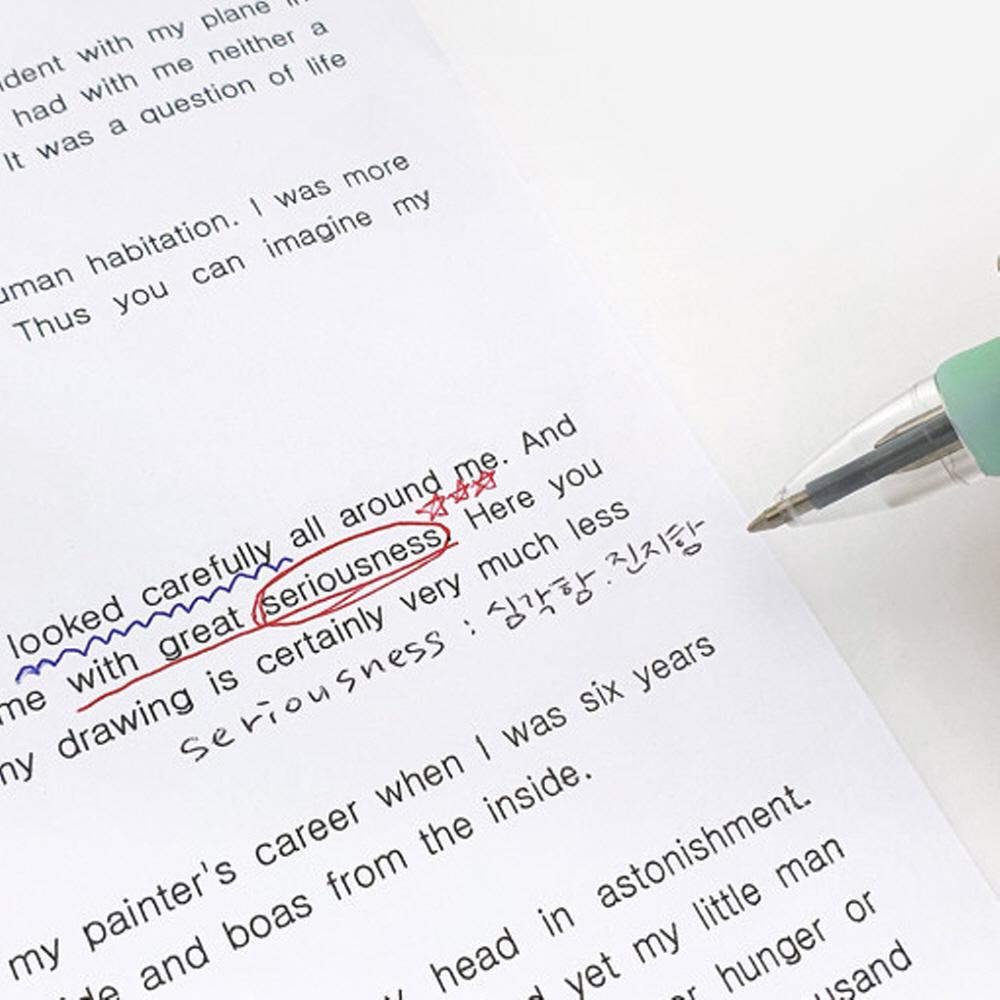 with my plane
had with me neither a
It was a question of life
habitation. I was more
Thus you can imagine my
looked carefully all around me. And
me with great seriousness. Here you
drawing is certainly very much less
seriousness : 심각함. 진지함
my painter's career when I was six years
and boas from the inside.
head in astonishment.
yet my little man
hunger or